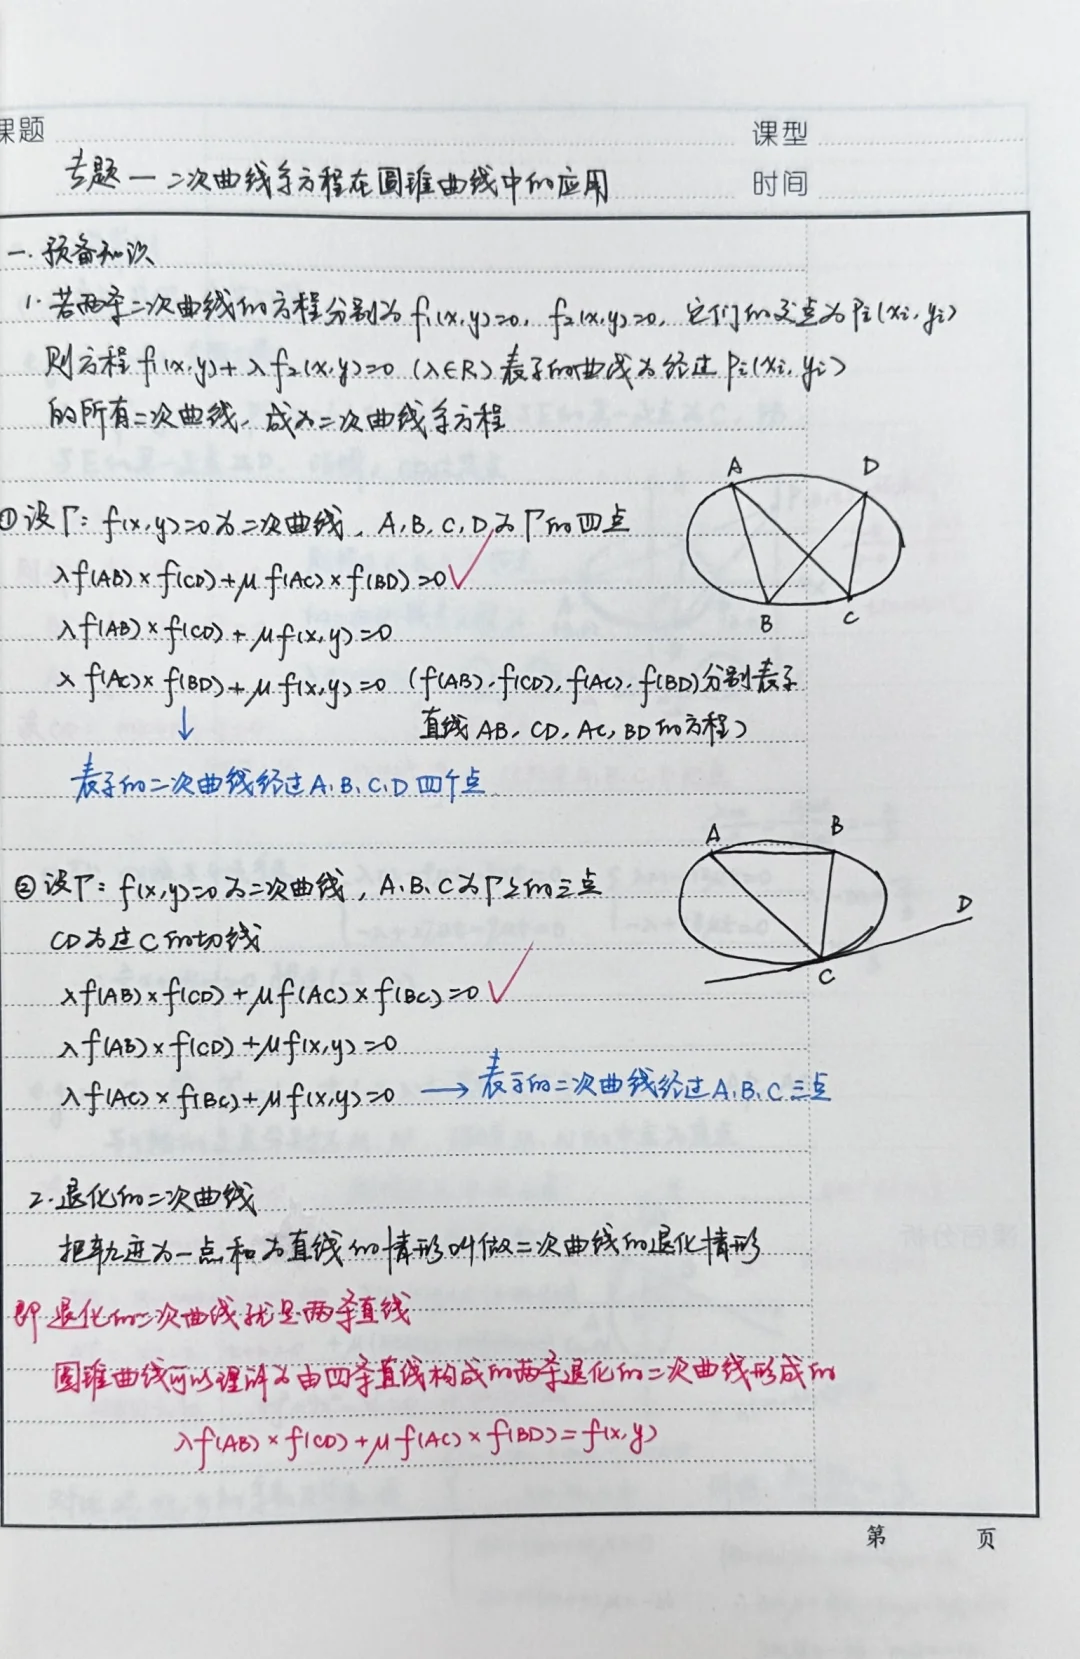 课题
课型
专题一 二次曲线系方程在圆锥曲线中的应用
时间
一. 预备知识
1. 若两条二次曲线的方程分别为 f₁(x,y)=0, f₂(x,y)=0, 它们的交点为 Pi(xi,yi)
则方程 f₁(x,y)+λf₂(x,y)=0 (λ∈R) 表示的曲线为经过 Pi(xi,yi)
的所有二次曲线, 成为二次曲线系方程
A D
① 设Γ: f(x,y)=0为二次曲线, A,B,C,D为Γ的四点
λf(AB)×f(CD)+μf(AC)×f(BD)=0 ✓
B C
λf(AB)×f(CD)+μf(x,y)=0
λf(AC)×f(BD)+μf(x,y)=0 (f(AB),f(CD),f(AC),f(BD)分别表示
直线AB,CD,AC,BD的方程)
↓
表示的二次曲线经过A,B,C,D四个点
A B
② 设Γ: f(x,y)=0为二次曲线, A,B,C为Γ上的三点
D
CD为过C的切线
C
λf(AB)×f(CD)+μf(AC)×f(BC)=0 ✓
λf(AB)×f(CD)+μf(x,y)=0
λf(AC)×f(BC)+μf(x,y)=0 → 表示的二次曲线经过A,B,C三点
2. 退化的二次曲线
把轨迹为一点和为直线的情形叫做二次曲线的退化情形
即退化的二次曲线就是两条直线
圆锥曲线可以理解为由四条直线构成的两条退化的二次曲线形成的
λf(AB)×f(CD)+μf(AC)×f(BD)=f(x,y)
第 页